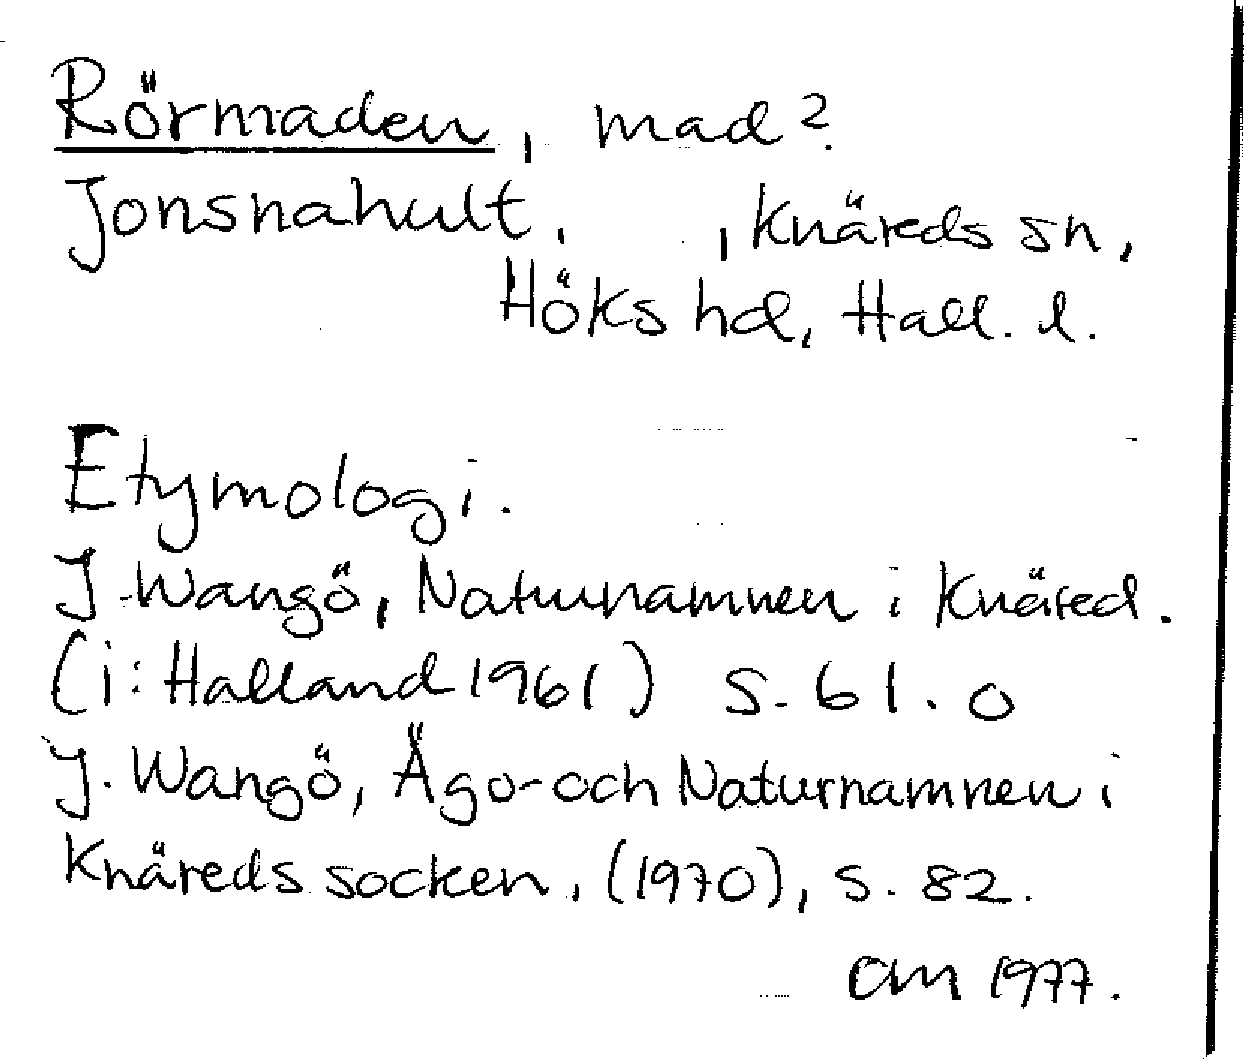 Rörmaden, mad?
Jonsnahult, , Knäreds sn,
Höks hd, Hall. l.
Etymologi.
J. Wangö, Naturnamnen i Knäred.
(i: Halland 1961) s. 61. o
J. Wangö, Ägo- och Naturnamnen i
Knäreds socken, (1970), s. 82.
CM 1977.